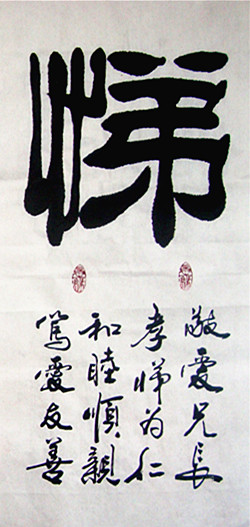 悌
敬爱兄長
孝悌为仁
和睦順親
篤爱友善